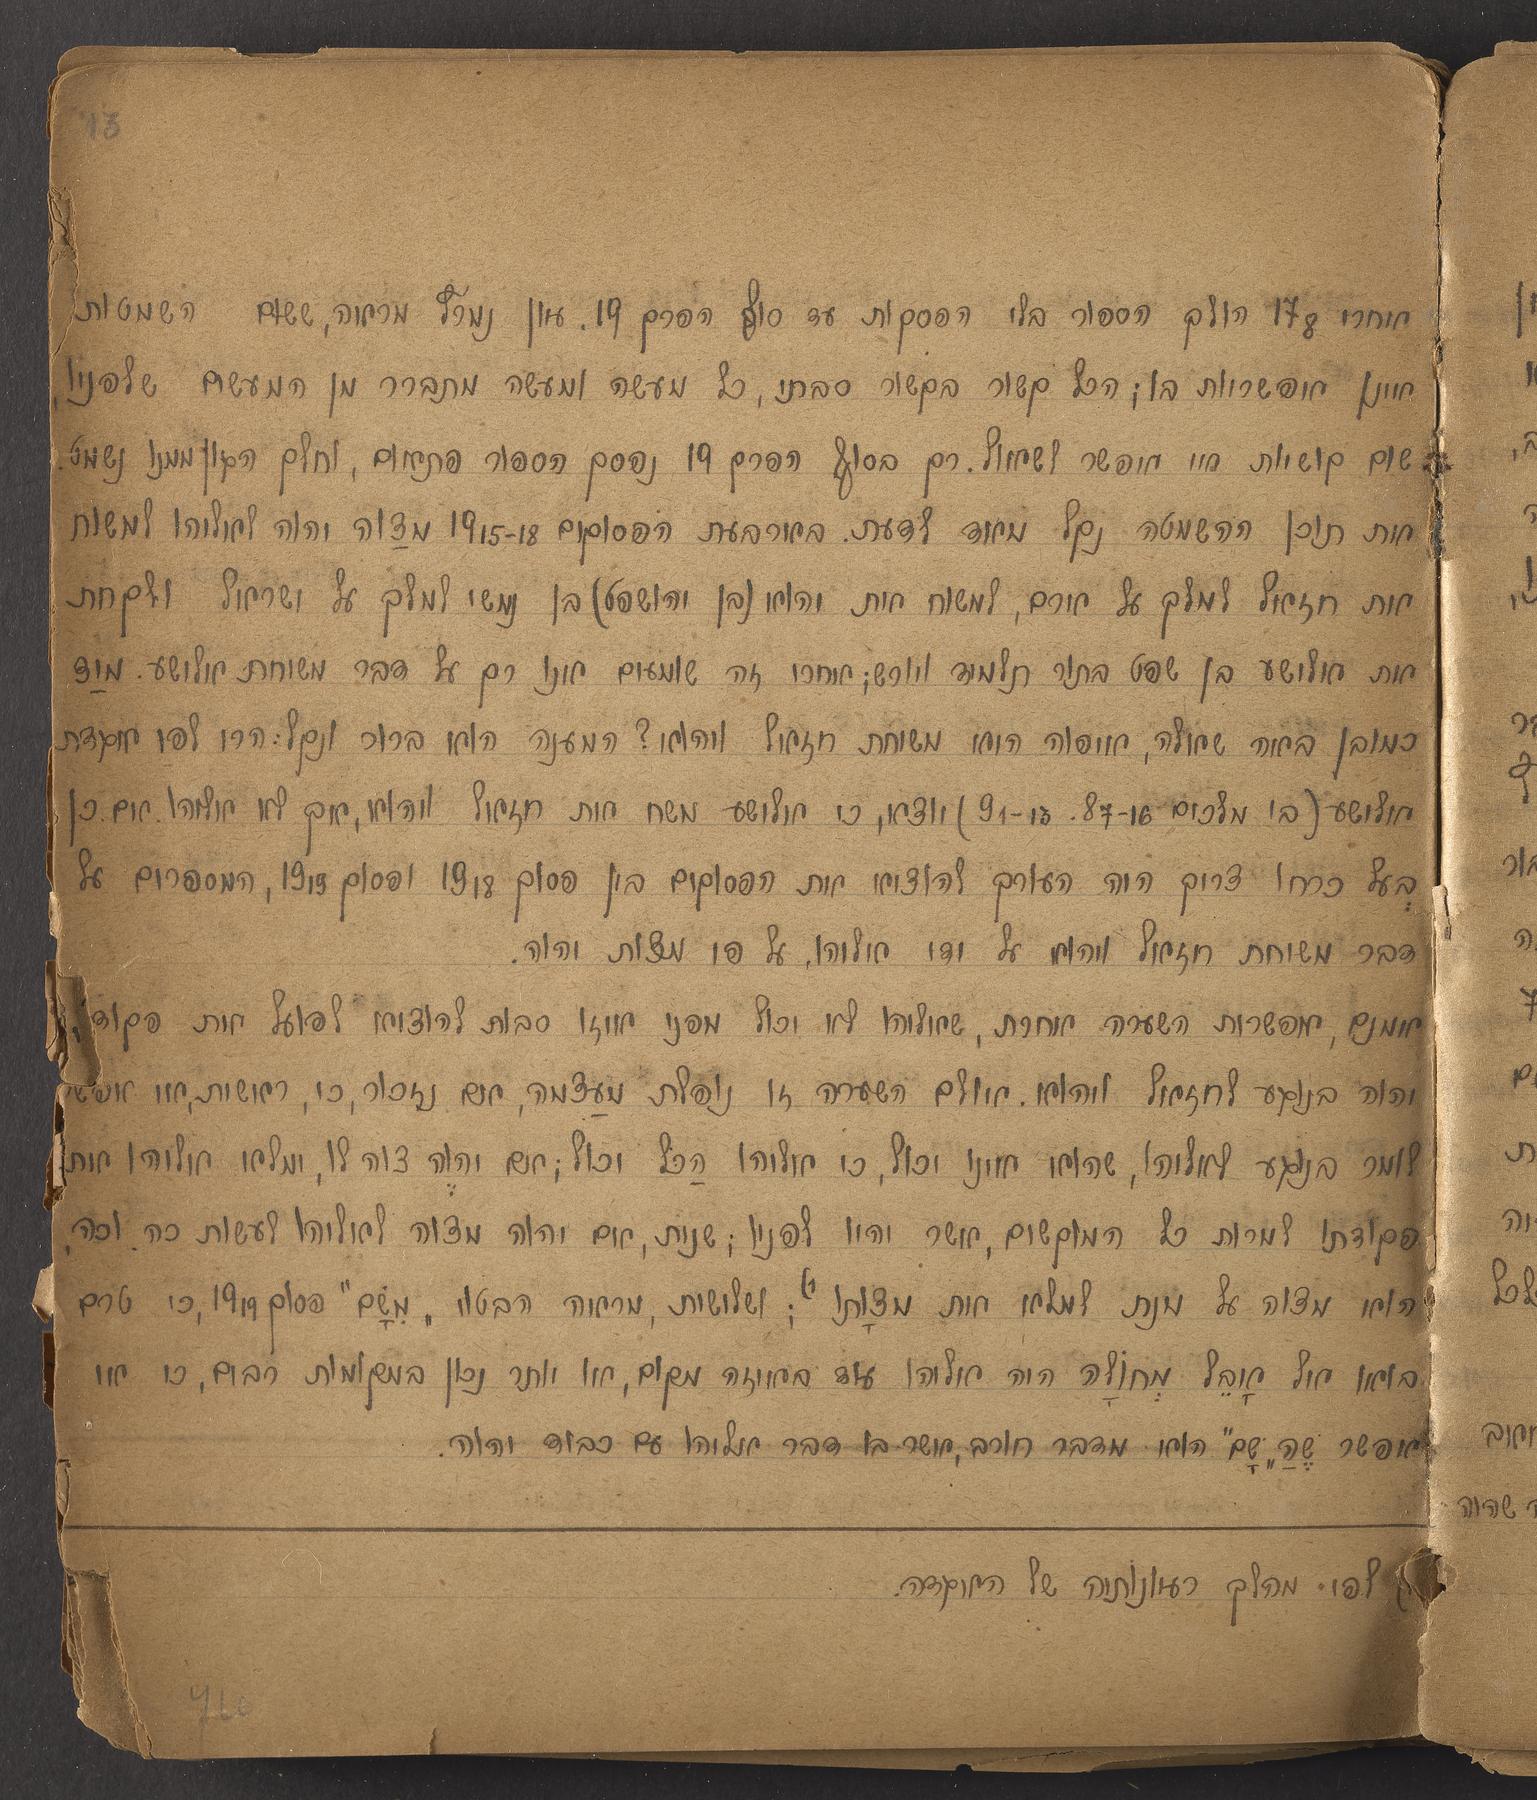 13
אחרי 17₈ הולך הספור בלי הפסקות עד סוף הפרק 19. עין נמרץ מראה, ששום השמטות
אינן אפשריות בו; הכל קשור בקשור סבתי, כל מעשה ומעשה מתברר מן המעשים שלפניו,
שום קושיות אי אפשר לשאול. רק בסוף הפרק 19 נפסק הספור פתאום, וחלק הגון ממנו נשמט.
את תוכן ההשמטה נקל מאוד לדעת. בארבעת הפסוקים 19₁₅₋₁₈ מצַוה יהוה לאליהו למשוח
את חזאל למלך על ארם, למשוח את יהוא (בן יהושפט) בן נמשי למלך על ישראל ולקחת
את אלישע בן שפט בתור תלמיד ויורש; אחרי זה שומעים אנו רק על דבר משוחת אלישע. מיַד
כמובן באה שאלה, איפוה הוא משוחת חזאל ויהוא? המענה הוא ברור ונקל: הרי לפי אגדת
אלישע (ב׳ מלכים 8₇₋₁₆. 9₁₋₁₃) יוצא, כי אלישע משח את חזאל ויהוא, אך לא אליהו. אם כן
בְעל כרחו צריך היה העורך להוציא את הפסוקים בין פסוק 19₁₈ ופסוק 19₁₉, המספרים על
דבר משוחת חזאל ויהוא על ידי אליהו, על פי מצות יהוה.
אמנם, אפשרות השערה אחרת, שאליהו לא יכול מפני איזו סבות להוציא לפועל את פקודת
יהוה בנוגע לחזאל ויהוא. אולם השערה זו נופלת מעַצמה, אם נזכור, כי, ראשית, אי אפשר
לומר בנוגע לאליהו, שהוא אינו יכול, כי אליהו הַכל יכול; אם יהוֶה צוה לו, ומלא אליהו את
פקודתו למרות כל המוקשים, אשר יהיו לפניו; שנית, אם יהוה מצוה לאליהו לעשות כה וכה,
הוא מצוה על מנת למלא את מצוָתו ¹⁾; ושלישית, מראה הבטוי „מִשָם" פסוק 19₁₉, כי טרם
בואו אל אָבֵל מְחוֹלָה היה אליהו עוד באיזה מקום, או יותר נכון במקומות רבים, כי אי
אפשר שֶהַ„שָם" הוא מדבר חורב, אשר בו דבר אליהו עם כבוד יהוה.
לפי מהלך רעיונותיה של האגדה.